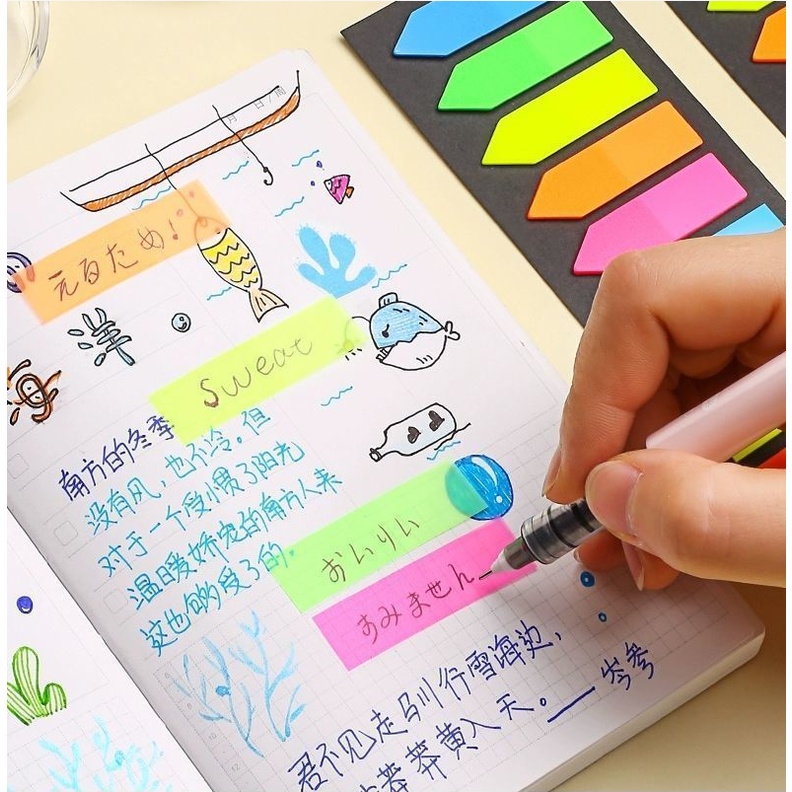 月 日/周
えるため!
海洋
Sweat
南方的冬季
没有风,也不冷。但
对于一个受惯了阳光
温暖娇宠的南方人来
这也够受了的.
おいりい
すみません
君不见走马川行雪海边,
莽莽黄入天。——岑参